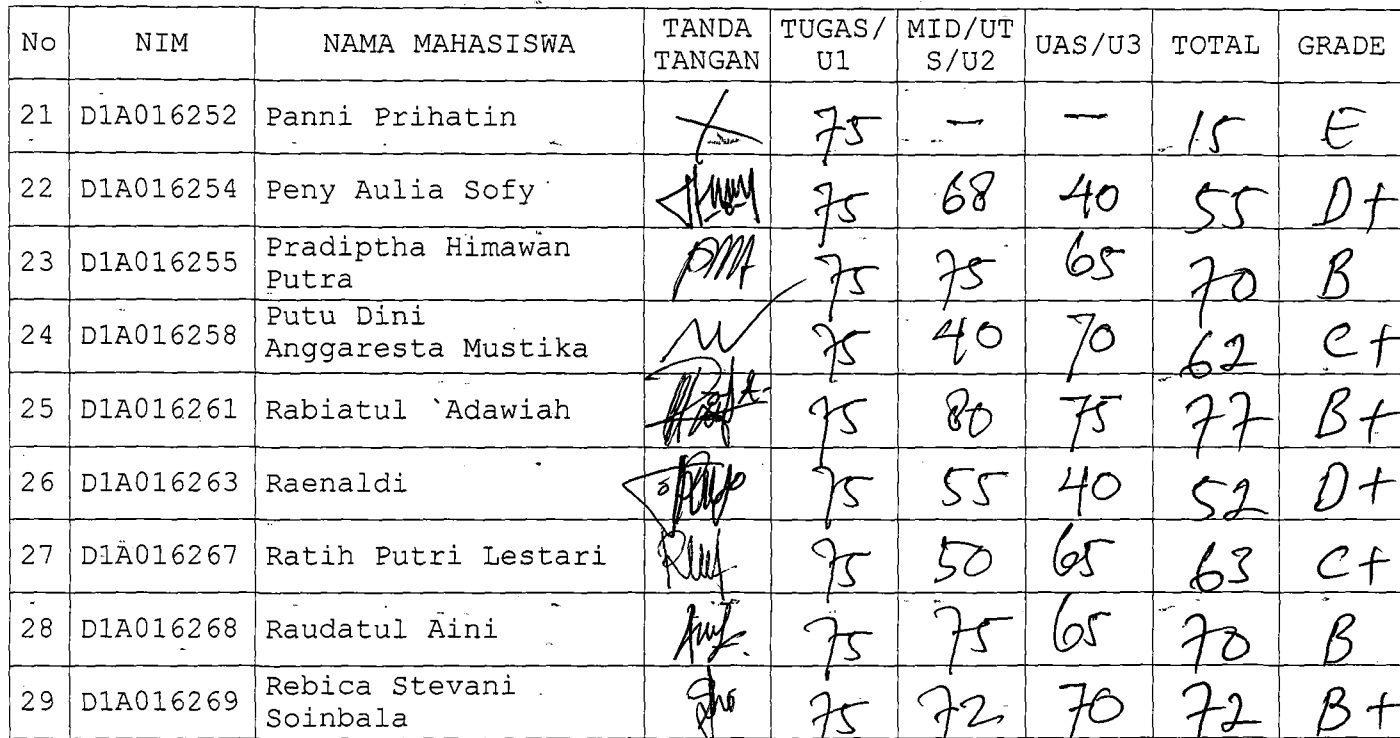 No NIM NAMA MAHASISWA TANDA TANGAN TUGAS/U1 MID/UTS/U2 UAS/U3 TOTAL GRADE
21 D1A016252 Panni Prihatin 75 — — 15 E
22 D1A016254 Peny Aulia Sofy 75 68 40 55 D+
23 D1A016255 Pradiptha Himawan Putra 75 75 65 70 B
24 D1A016258 Putu Dini Anggaresta Mustika 75 40 70 62 C+
25 D1A016261 Rabiatul `Adawiah 75 80 75 77 B+
26 D1A016263 Raenaldi 75 55 40 52 D+
27 D1A016267 Ratih Putri Lestari 75 50 65 63 C+
28 D1A016268 Raudatul Aini 75 75 65 70 B
29 D1A016269 Rebica Stevani Soinbala 75 72 70 72 B+